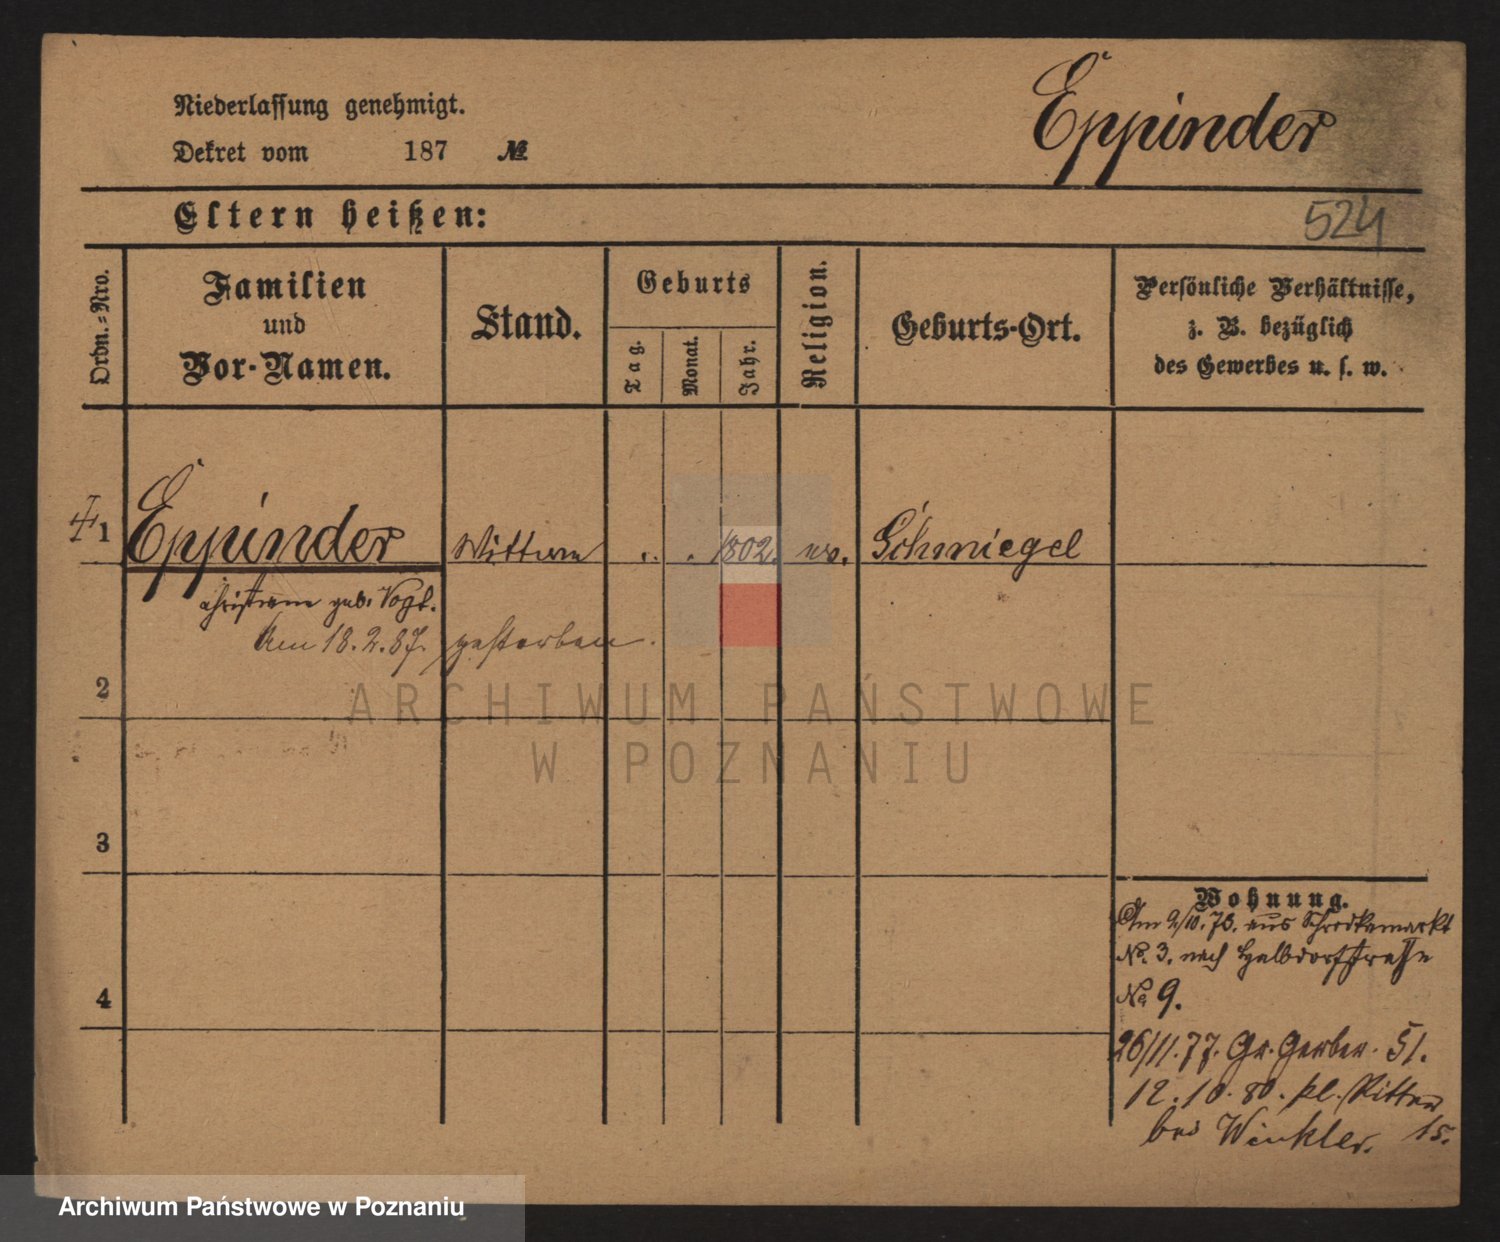 Niederlassung genehmigt.
Eppinder
Dekret vom 187 №
Eltern heißen:
524
Ordn.=Nro.
Familien
und
Vor-Namen.
Stand.
Geburts
Tag.
Monat.
Jahr.
Religion.
Geburts-Ort.
Persönliche Verhältnisse,
z. B. bezüglich
des Gewerbes u. s. w.
1 Eppinder Wittwe . . 1802. ev. Schmiegel
Christiane geb. Vogt.
Am 18.2.87. gestorben.
2
ARCHIWUM PAŃSTWOWE
W POZNANIU
3
4
Wohnung.
Am 2/10. 73. aus Schrodkamarkt
No. 3. nach Halbdorfstraße
No 9.
26/11. 77. Gr. Gerber. 51.
12. 10. 80. kl. Ritter
bei Winkler. 15.
Archiwum Państwowe w Poznaniu